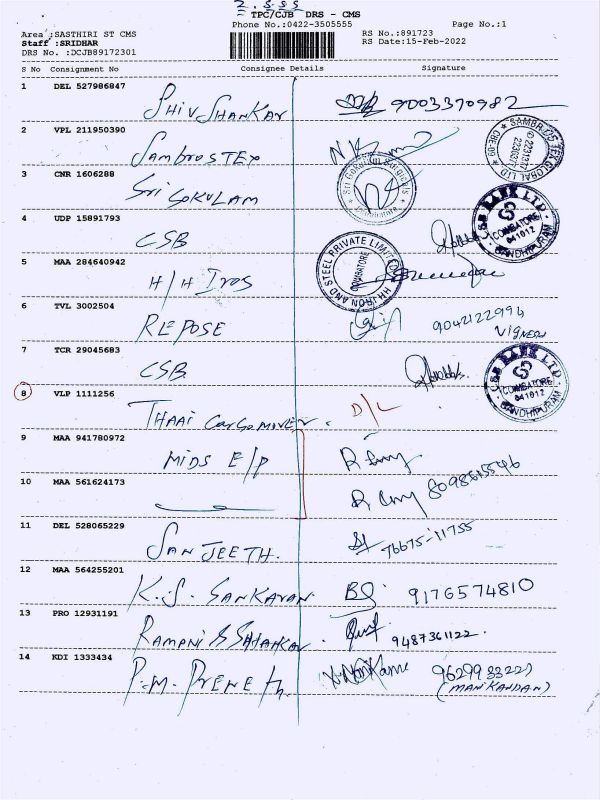 2.555
TPC/CJB DRS - CMS
Phone No.:0422-3505555
Page No.:1
Area :SASTHIRI ST CMS
Staff :SRIDHAR
DRS No. :DCJB89172301
RS No.:891723
RS Date:15-Feb-2022
S No Consignment No Consignee Details Signature
1 DEL 527986847
SHIV SHANKAR 9003370982
2 VPL 211950390
SAMBROSTEX NK
SAMBROSTEX GLOBAL LTD
3 CNR 1606288
Sri GOKULAM
4 UDP 15891793
CSB
CSB BANK LTD.
COIMBATORE
641012
GANDHIPURAM
5 MAA 284640942
H/H Iros
HH IRON AND STEEL PRIVATE LIMITED
COIMBATORE
6 TVL 3002504
REPOSE 9042122994
VIGNESH
7 TCR 29045683
CSB
CSB BANK LTD.
COIMBATORE
641012
GANDHIPURAM
8 VLP 1111256
THAAI CarGOMOVER. D/L
9 MAA 941780972
MIDS E/P
10 MAA 561624173
11 DEL 528065229
SANJEETH. 76675-11755
12 MAA 564255201
K.S. SANKARAN. BS 9176574810
13 PRO 12931191
RAMANI 9487361122.
14 KDI 1333434
P.M. PRENETH.
(MANIKANDAN)